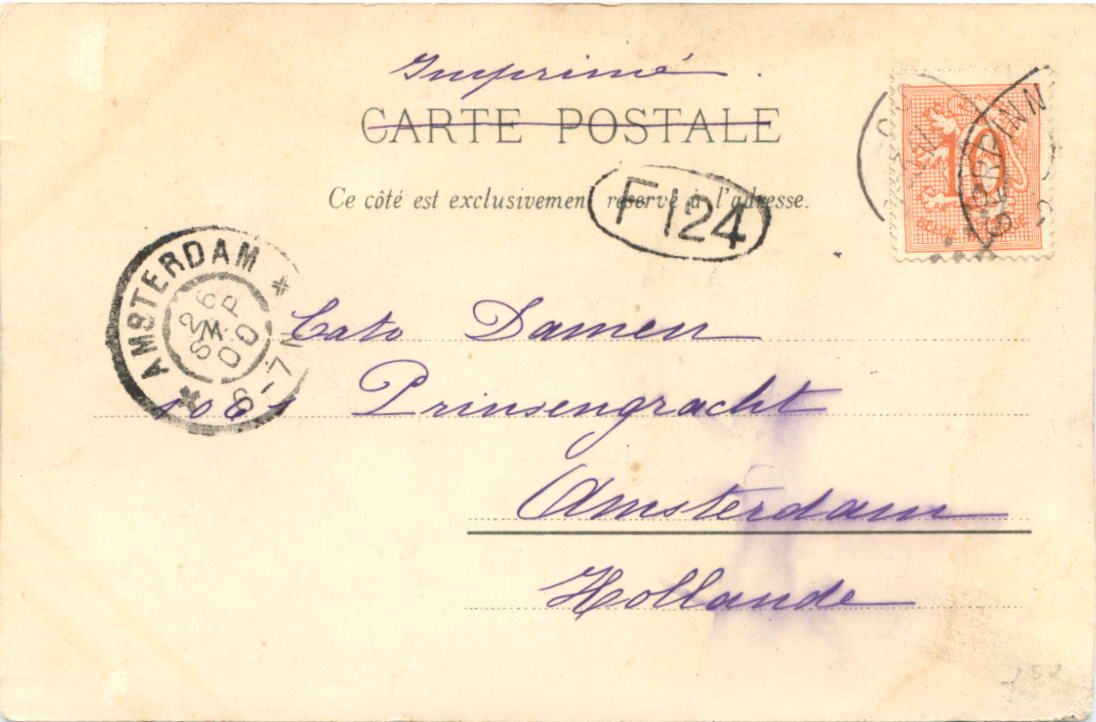 Imprimé.
CARTE POSTALE
Ce côté est exclusivement réservé à l'adresse.
F 124
10
BELGIE BELGIQUE
AMSTERDAM
26 SEP 00
6-7 N
Cato Damen
Prinsengracht
Amsterdam
Hollande